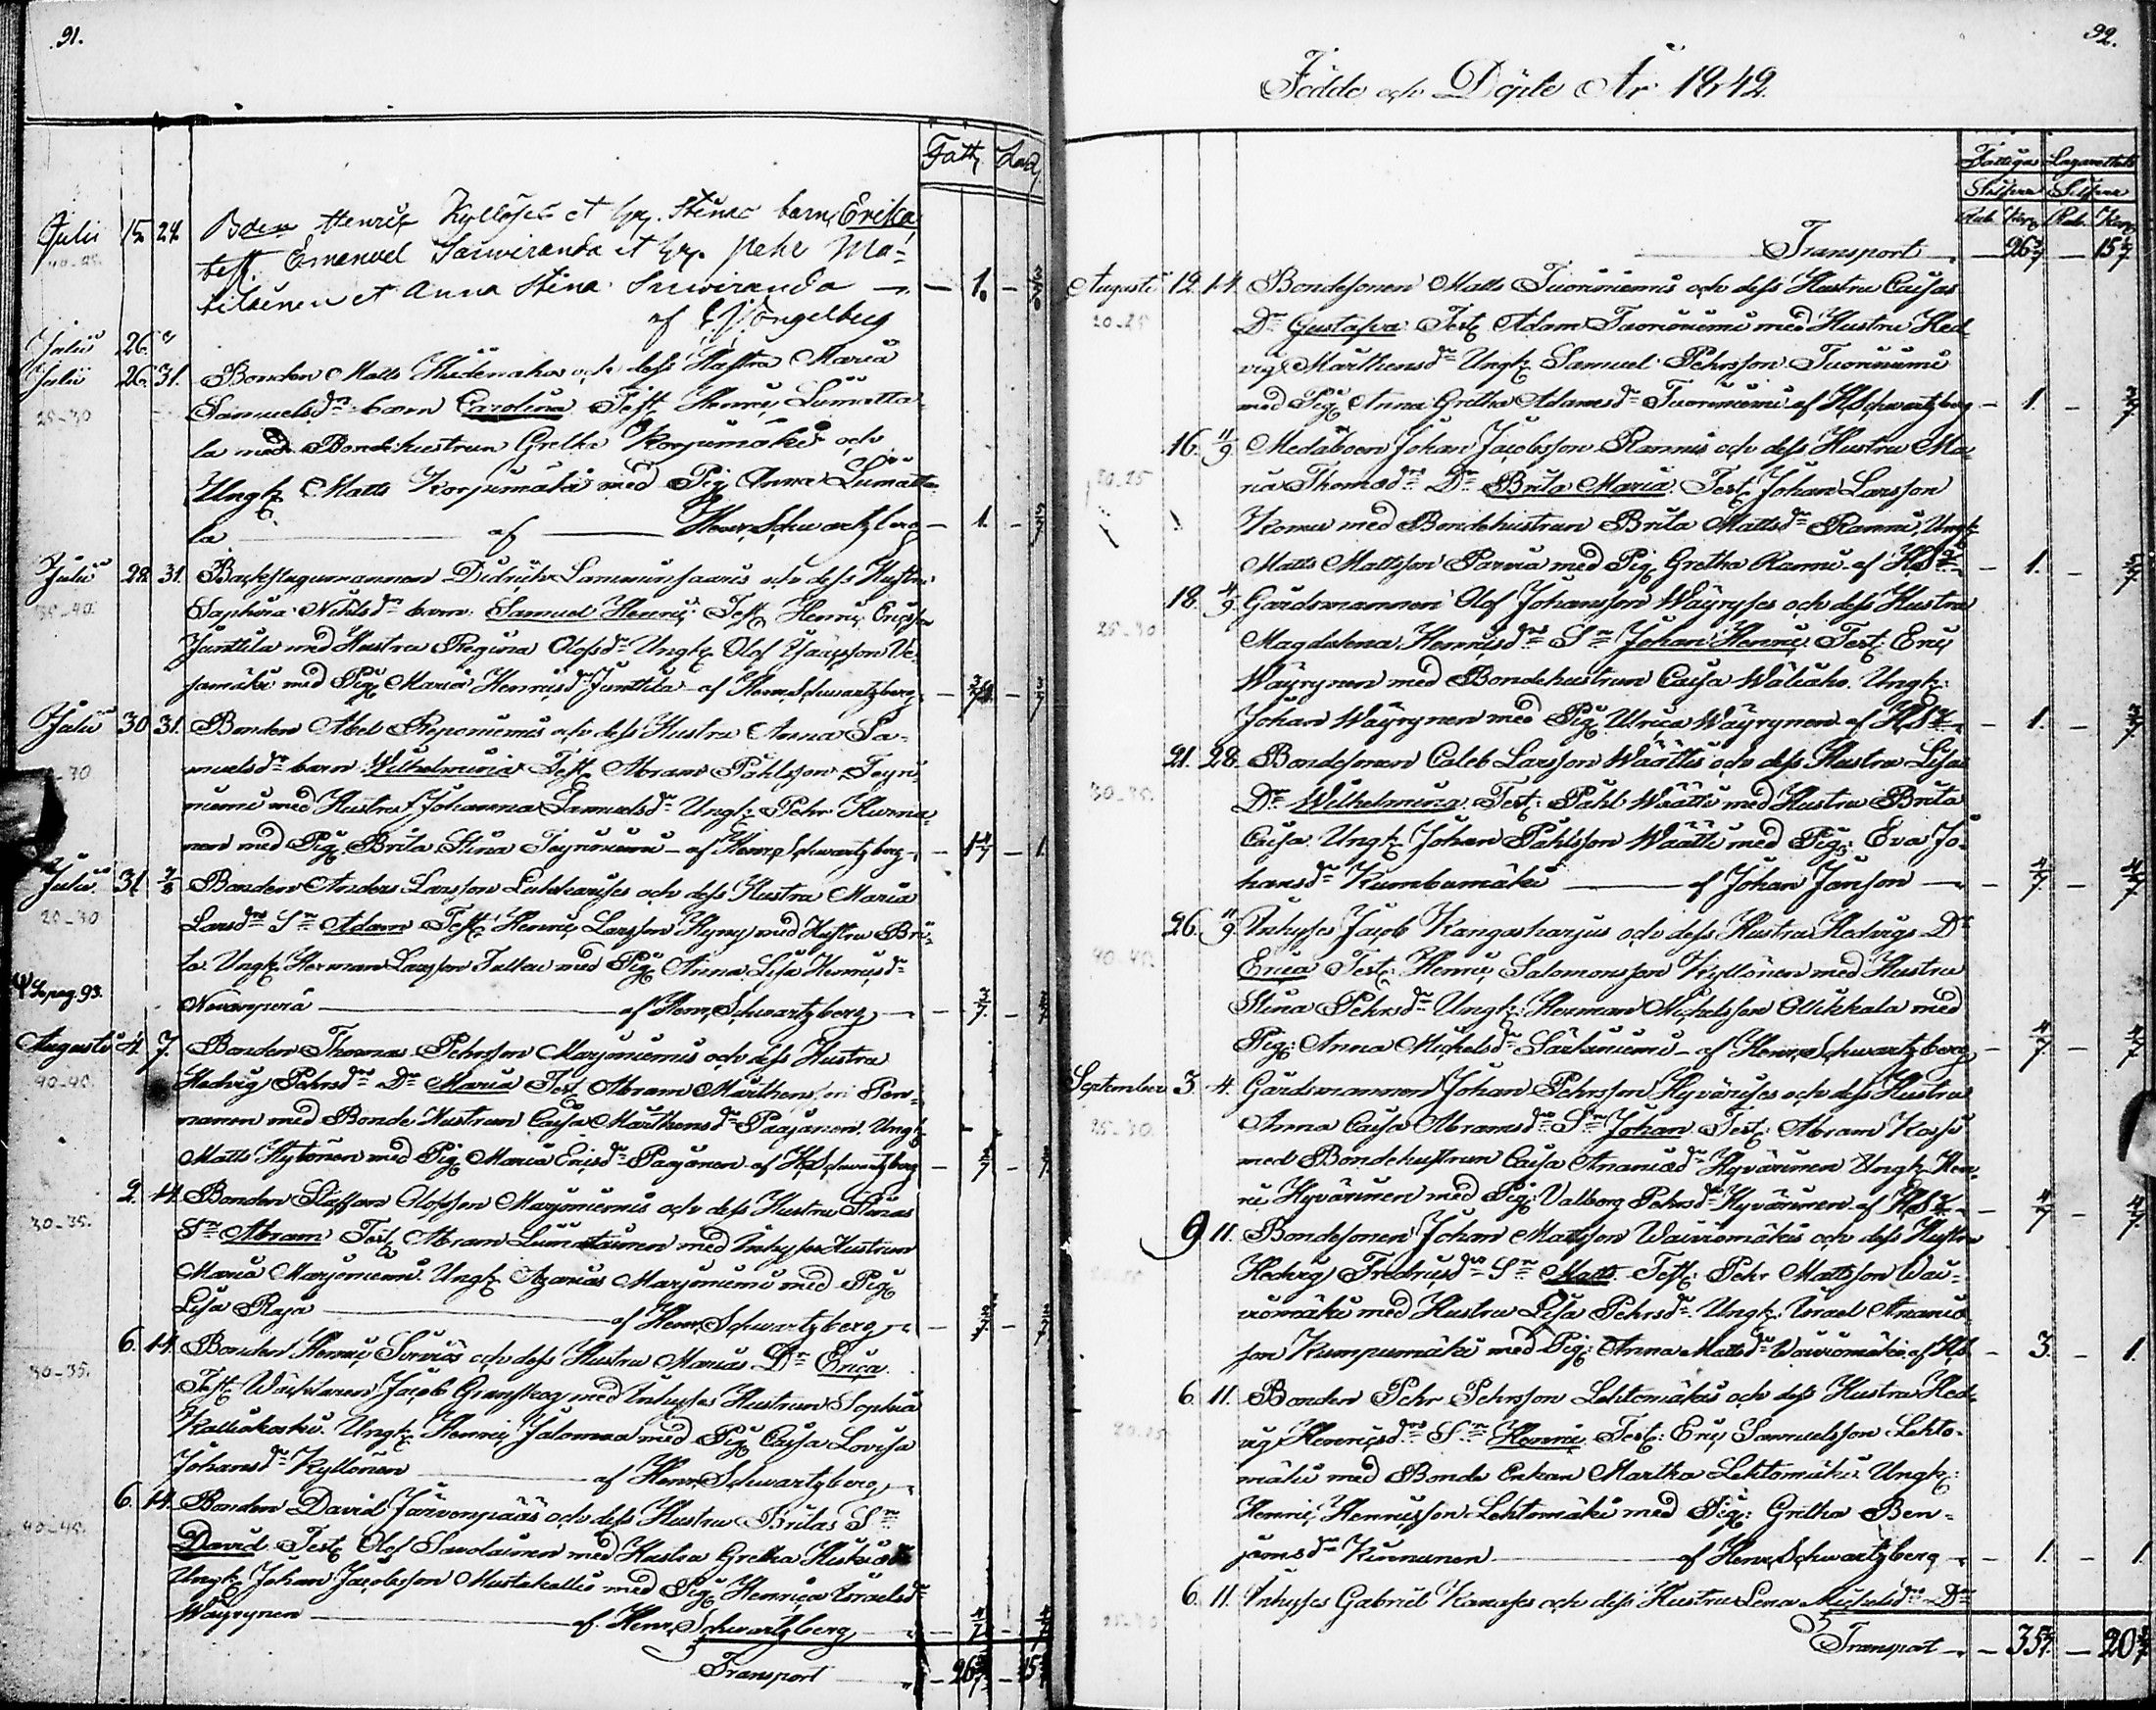 91.
Fatt. Laz.
Julii 15 24 Bden Henric Kyllöses et hr. Stinas barn Erika
40-45. test. Emanuel Sarviranda et hr. Pehr Ma-
et Anna Stina Sarviranda — 1.
af Wongelberg
Julii 26.
Julii 26. 31. Bonden Matts och dess Hustru Maria
25-30 Samuelsdrs barn Carolina Test. Henric Lumatta-
la med Bondehustrun Gretha Korjumäki och
Ungk. Matts Korjumäki med Pig. Anna Lumatta-
la — af — Henr. Schwartzberg — 1. — 3/7
Julii 29. 31. Backstugumannen Didrich Lammunsaaris och dess Hustru
35-40. Saphira Nehlsdrs barn Samuel Henric. Test. Henric Ericsson
Junttila med Hustru Regina Olofsdr Ungk. Olof
jamäki med Pig. Maria Henricsdr Junttila af Henr. Schwartzberg
Julii 30 31. Bonden Abel Reponiemis och dess Hustru Anna Sa-
-30 muelsdrs barn Wilhelmina Test. Abram Påhlsson Teyri-
niemi med Hustru Johanna Samuelsdr Ungk. Pehr Hurna-
nen med Pig. Brita Stina Teyriniemi — af Henr. Schwartzberg — 1.
Julii 31 7/8 Bonden Anders Larsson och dess Hustru Maria
20-30 Larsdrs Sn Adam Test. Henric Larsson Hyry med Hustru Bri-
ta. Ungk. Herman Larsson med Pig. Anna Lisa Henricsdr
Ψ Se pag. 93. Nevanperä — af Henr. Schwartzberg
Augusti 4. 7. Bonden Thomas Pehrsson Marjoniemis och dess Hustru
40-40. Hedvig Pehrsdrs Dr Maria Test. Abram Mårthensson Pen-
nanen med Bonde Hustrun Caisa Mårthensdr Paajanen. Ungk.
Matts Hytönen med Pig. Maria Ericsdr Paajanen af H. Schwartzberg
2. 14. Bonden Staffan Olofsson Marjoniemis och dess Hustru Stinas
30-35. Sn Abram Test. Abram Luma med Inhyses Hustrun
Maria Marjoniemi. Ungk. Azarias Marjoniemi med Pig.
Lisa Raja — af Henr. Schwartzberg
6. 14. Bonden Henric Sorviös och dess Hustru Marias Dr Erica.
30-35. Test. Jacob Granskog med Inhyses Hustrun Sophia
Kalliokoski. Ungk. Henric Jalonna med Pig. Caisa Lovisa
Johansdr Kyllönen — af Henr. Schwartzberg
6. 14. Bonden David Järvenpääs och dess Hustru Britas Sn
40-45. David. Test. Olof Savolainen med Hustru Gretha
Ungk. Johan Jacobsson Mustakallio med Pig. Henrica Israelsdr
Wäyrynen — af Henr. Schwartzberg — 4/7
Transport — 26 — 15
92.
Födde och Döpte År 1842.
Fattigas Lazarettets
Silfver Silfver
Rub. Kop. Rub. Kop.
Transport — 26 — 15
Augusti 12. 14. Bondesonen Matts Tuoriniemis och dess Hustru Caisas
20-25 Dr Gustafva. Test. Adam Tuoriniemi med Hustru Hed-
vig Mårthensdr Ungk. Samuel Pehrsson Tuoriniemi
med Pig. Anna Gretha Adamsdr Tuoriniemi af H. Schwartzberg — 1.
16. 11/9 Medåboen Johan Jacobsson Rannis och dess Hustru Ma-
20-25 ria Thomædrs Dr Brita Maria. Test. Johan Larsson
Komu med Bondehustrun Brita Mattsdr Ranni, Ungk.
Matts Mattsson Parvia med Pig. Gretha Ranni. af H.S. — 1.
18. 4/9 Gårdsmannen Olof Johansson Wäyryses och dess Hustru
25-30 Magdalena Henricsdrs Sn Johan Henric. Test. Eric
Wäyrynen med Bondehustrun Caisa Wäliaho. Ungk:
Johan Wäyrynen med Pig. Ulrica Wäyrynen. af H.S. — 1.
21. 28. Bondesonen Caleb Larsson Wäättis och dess Hustru Lisas
30-35. Dr Wilhelmina. Test: Påhl Wäätti med Hustru Brita
Caisa. Ungk. Johan Påhlsson Wäätti med Pig: Eva Jo-
hansdr Kumbumäki — af Johan Janson — 4/7 — 4/7
26. 11/9 Inhyses Jacob Kangasharjus och dess Hustru Hedvigs Dr
40-40. Erica Test: Henric Salomonsson Kyllönen med Hustru
Stina Pehrsdr Ungk: Herman Michelsson Ollikkala med
Pig: Anna Michelsdr Särkiniemi — af Henr. Schwartzberg — 4/7 — 4/7
September 3. 4. Gårdsmannen Johan Pehrsson Hyvärises och dess Hustru
25-30. Anna Caisa Abramsdrs Sn Johan. Test: Abram Kossi
med Bondehustrun Caisa Ananiædr Hyvärinen Ungk. Hen-
ric Hyvärinen med Pig: Valborg Pehrsdr Hyvärinen. af H.S. — 4/7 — 4/7
9 11. Bondesonen Johan Mattsson Waiviomäkis och dess Hustru
Hedvig Fredricsdrs Sn Matts. Test: Pehr Mattsson Wai-
viomäki med Hustru Lisa Pehrsdr. Ungk. Israel Ananiæ-
son Kumpumäki med Pig: Anna Mattsdr Waiviomäki. af H.S. — 3. — 1.
6. 11. Bonden Pehr Pehrsson Lehtomäkis och dess Hustru Hed-
vig Henricsdrs Sn Henric. Test: Eric Samuelsson Lehto-
mäki med Bonde Enkan Martha Lehtomäki. Ungk:
Henric Henricsson Lehtomäki med Pig: Gretha Ben-
jamsdr Kinnunen — af Henr. Schwartzberg — 1. — 1
6. 11. Inhyses Gabriel Kanases och dess Hustru Lena Michelsdrs Dr
Transport — 35 — 20